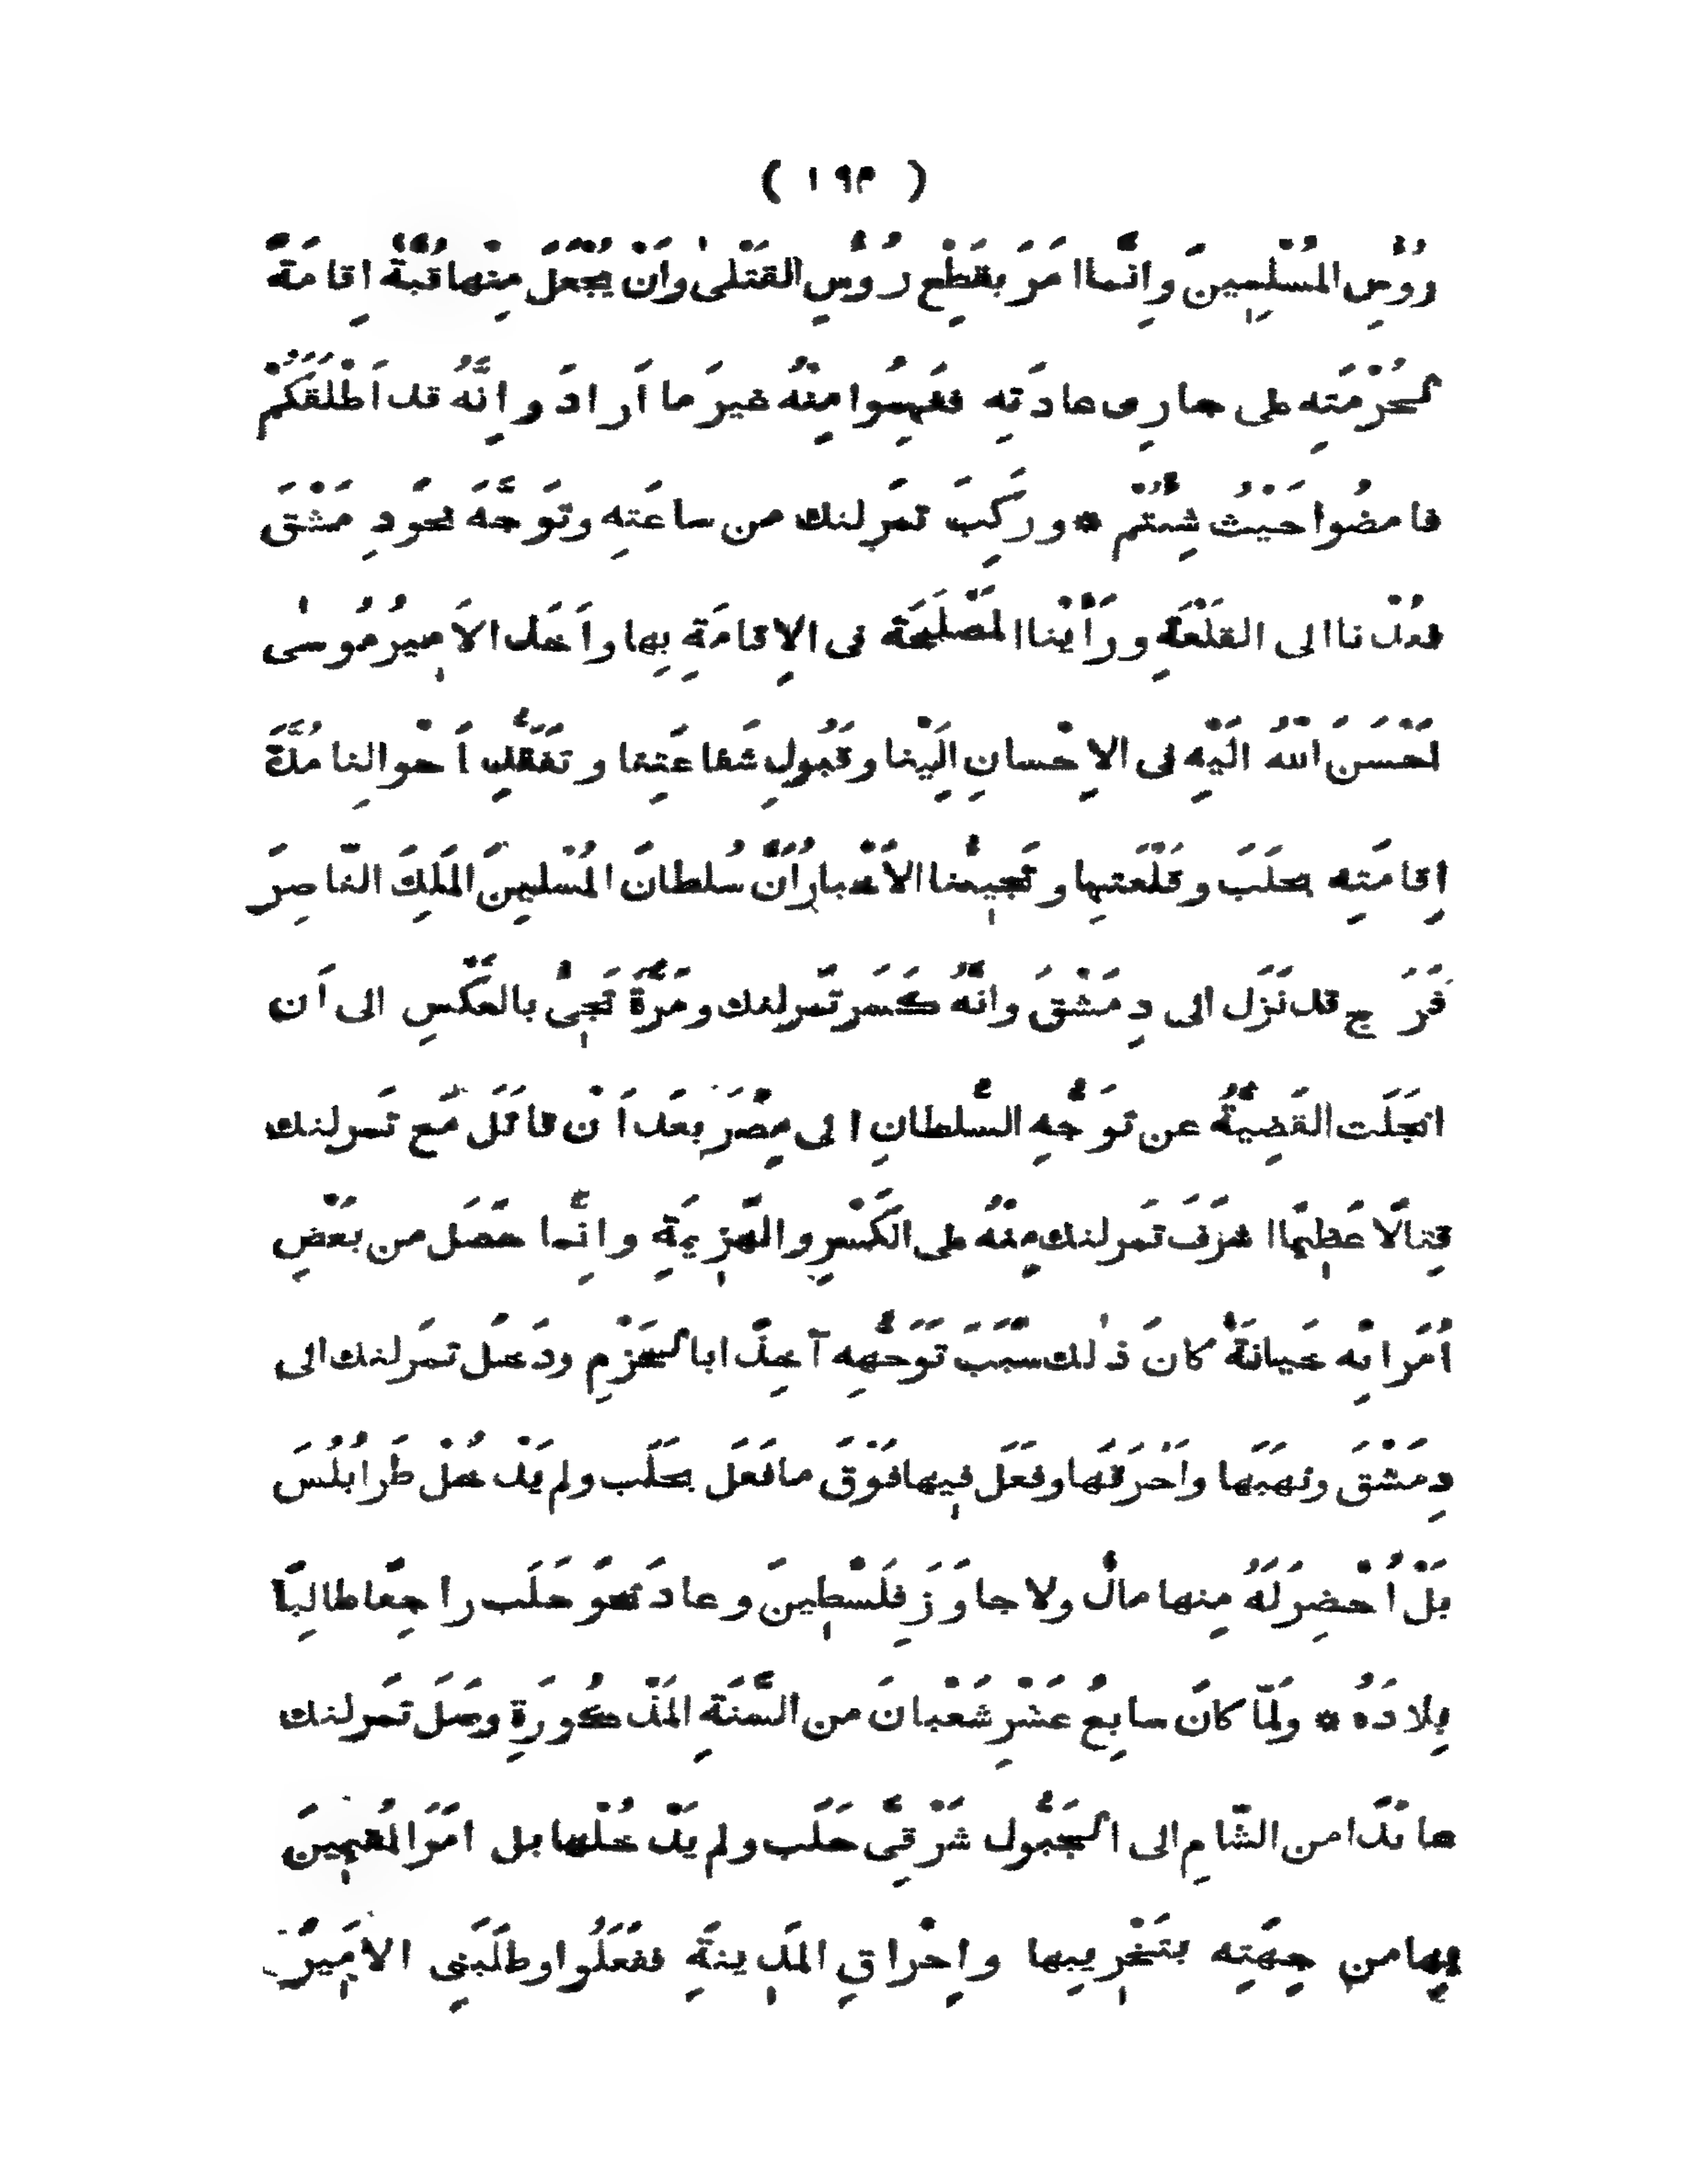 ( ١٩٣ )
رُؤُسِ المُسْلِمِينَ وانَّما اَمَرَ بقَطْعِ رُؤُسِ القَتْلىٰ وانْ يُجْعَلَ مِنْها قُبَّةٌ اِقامَةً
لحُرْمَتِه على جارِى عادَتِه ففَهِمُوا مِنْهُ غيرَ ما اَرادَ و اِنَّهُ قد اَطْلَقَكُمْ
فامضُوا حَيْثُ شِئْتُم * و رَكِبَ تَمَرلنك من ساعَتِه وتَوَجَّهَ نحوَ دِمَشْقَ
فعُدْنا الى القَلْعَةِ ورَأَيْنا المَصْلَحَةَ فى الاِقامَةِ بِها واَخَذَ الاَمِيرُ مُوسٰى
اَحْسَنَ اللهُ اليْهِ فى الاِحْسانِ اِلَيْنا وقَبُولِ شَفاعَتِنا و تفَقُّدِ اَحْوالِنا مُدَّةَ
اِقامَتِه بحَلَبَ وقَلْعَتِها و تَجِيئُنا الاَخْبارُ اَنَّ سُلطانَ المُسْلِمِينَ المَلِكَ النّاصِرَ
فَرَج قد نَزَل الى دِمَشْقَ وانَّهُ كَسَر تَمَرلنك ومَرَّةً تَجِىُٔ بالعَكْسِ الى اَن
انجَلَت القَضِيَّةُ عن تَوَجُّهِ السُّلطانِ الى مِصْرَ بعَد اَنْ قاتَلَ مَع تَمَرلنك
قِتالًا عَظِيمًا اشرَفَ تَمَرلنك مِنْهُ على الكَسْرِ والهَزِيمَةِ وانَّما حَصَل من بَعْضِ
اُمَرائِه خَيانَةٌ كانَ ذٰلك سَبَبَ تَوَجُّهِه آخِذًا بالحَزْمِ ودَخَل تمَرلنك الى
دِمَشْقَ ونهَبَها واَحْرَقَها وفعَل فِيها فَوْقَ ما فعَل بحَلَب ولم يَدْخُلْ طَرابُلُسَ
بَلْ اُحْضِرَ لَهُ مِنها مالٌ ولا جاوَزَ فِلَسْطِينَ وعادَ نحوَ حَلَب راجِعًا طالِبًا
بِلادَهُ * ولَمّا كانَ سابِعُ عَشَرِ شَعْبانَ من السَّنَةِ المَذْكُورَةِ وصَلَ تَمَرلنك
عائدًا من الشّامِ الى الجَبُّول شَرْقِىَّ حَلَب ولم يَدْخُلْها بل امَرَ المُقِيمِينَ
بِها من جِهَتِه بتَخْرِيبِها واِحْراقِ المَدِينَةِ ففَعَلُوا وطَلَبَنِى الاَمِيرُ